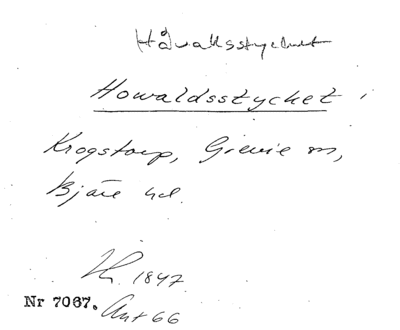 Håvallsstycket
Howaldsstycket
Krogstorp, Grevie sn,
Bjäre hd.
1847
Nr 7067. Ant 66